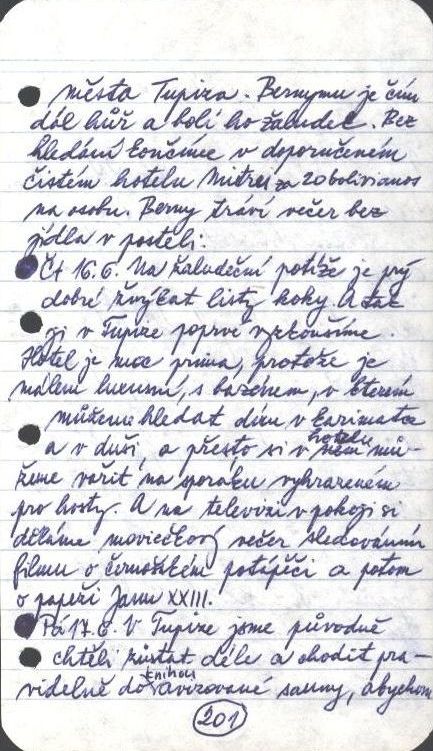 města Tupiza. Bernymu je čím
dál hůř a bolí ho žaludek. Bez
hledání končíme v doporučeném
čistém hotelu Mitru za 20 bolivianos
na osobu. Berny tráví večer bez
jídla v posteli.
Čt 16. 6. Na žaludeční potíže je prý
dobré žvýkat listy koky. A tak
ji v Tupize poprvé vyzkoušíme.
Hotel je moc prima, protože je
málem luxusní, s bazénem, v kterém
můžeme hledat díru v karimatce
a v duši, a přesto si v hotelu něm mů-
žeme vařit na sporáku vyhrazeném
pro hosty. A na televizi v pokoji si
děláme movíčkový večer sledováním
filmu o černošském potápěči a potom
o papeži Janu XXIII.
Pá 17. 6. V Tupize jsme původně
chtěli zůstat déle a chodit pra-
videlně do knihou avizované sauny, abychom
201